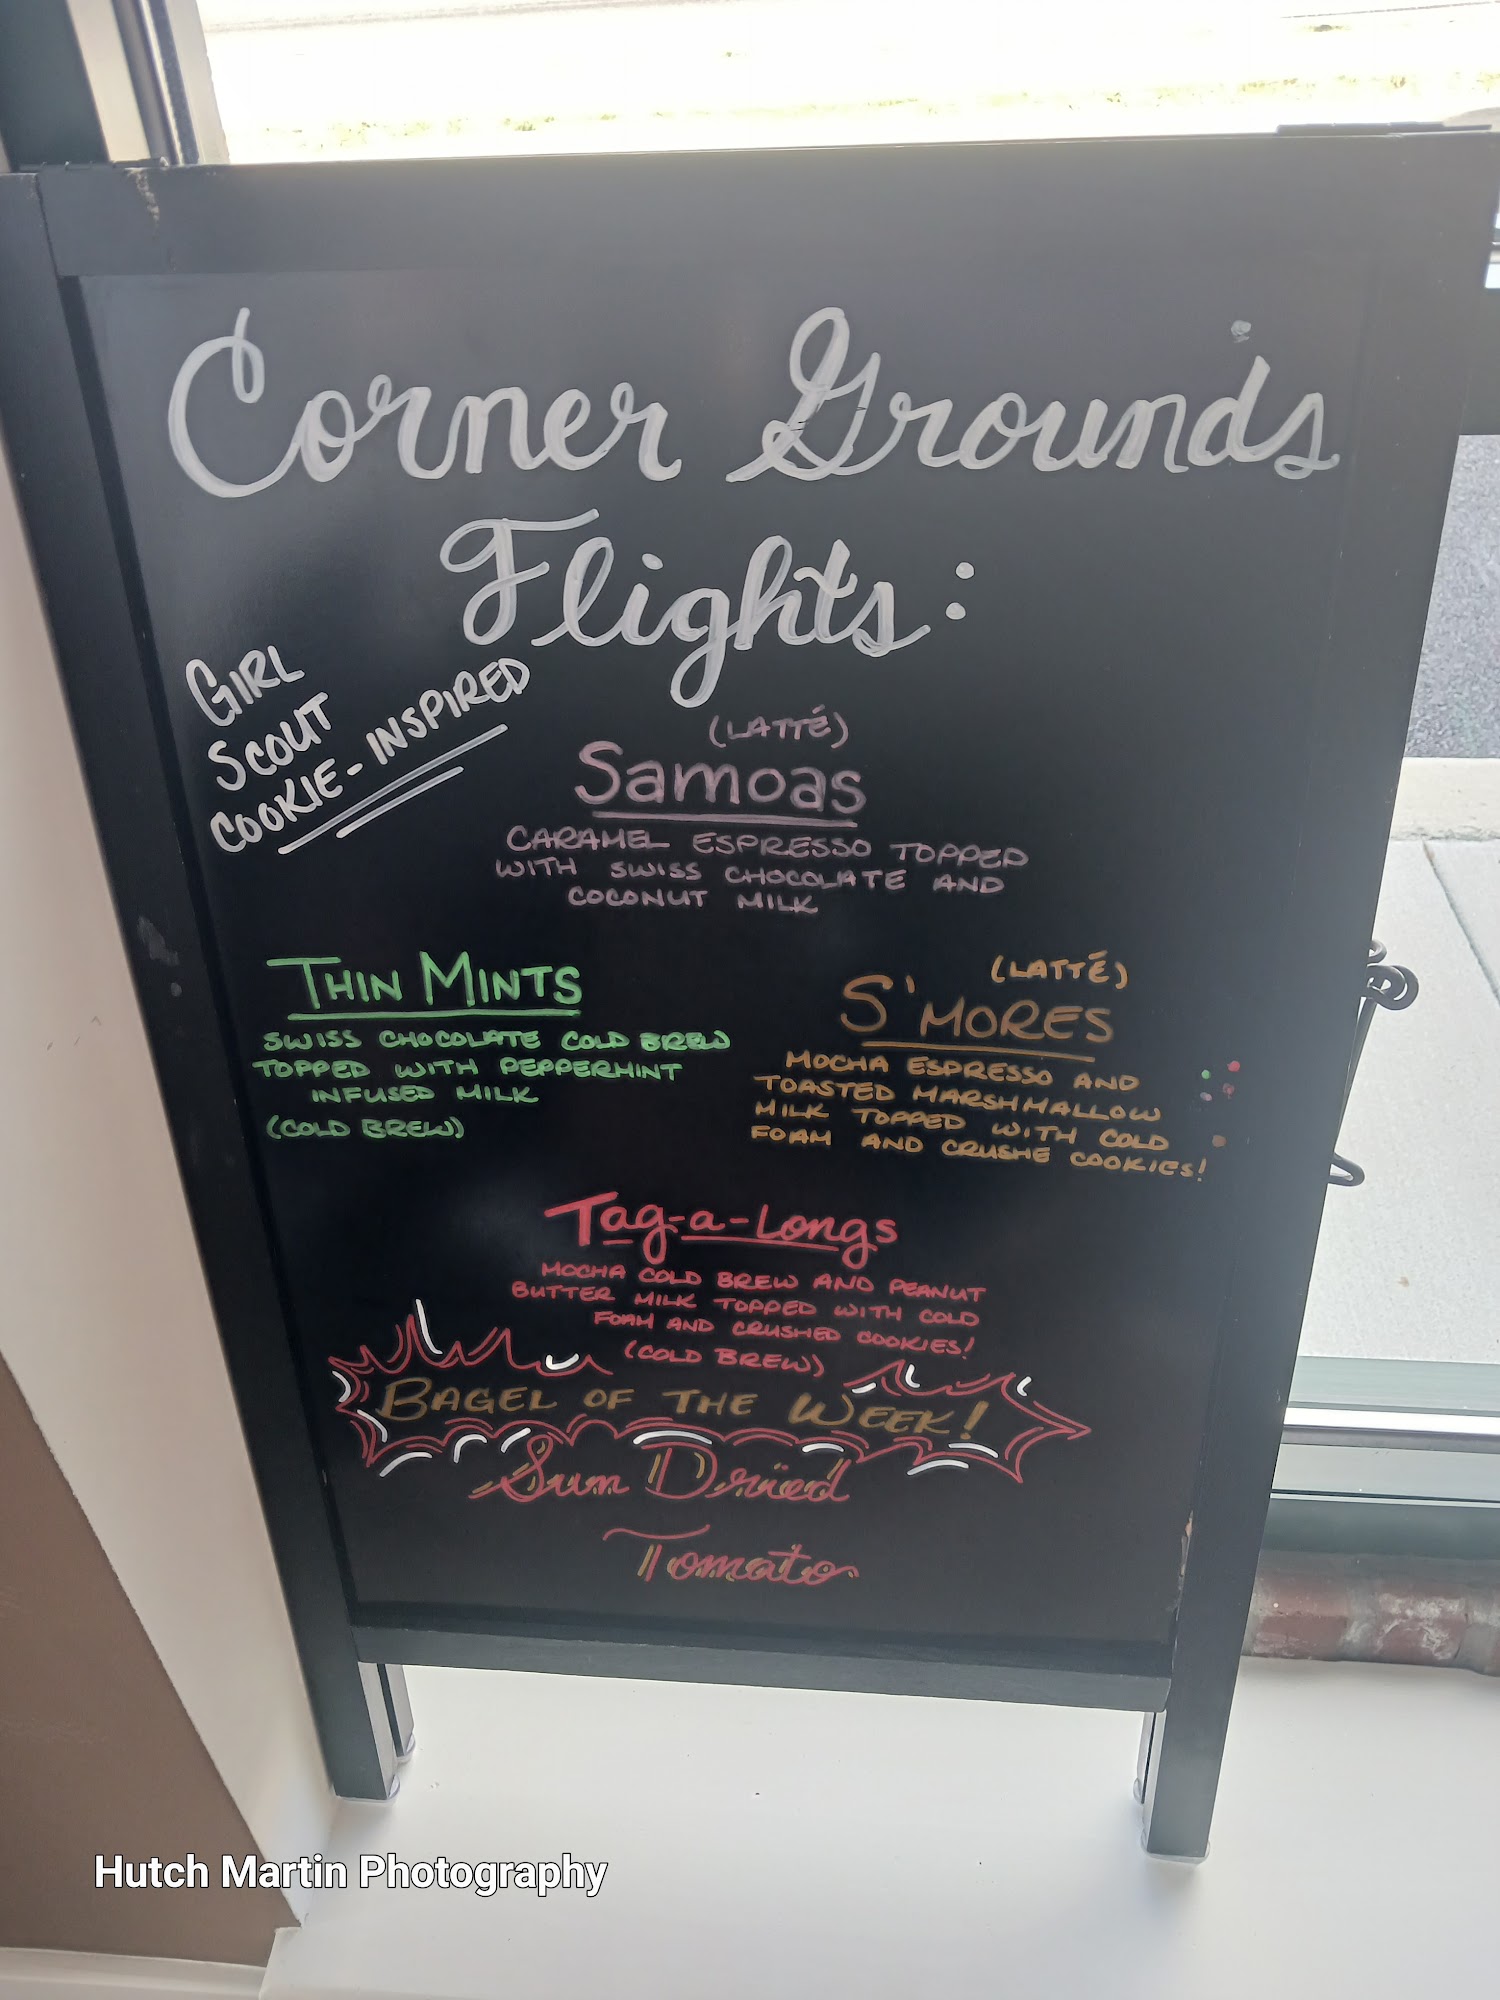 Corner Grounds
Flights:
GIRL
SCOUT
COOKIE-INSPIRED
(LATTÉ)
Samoas
CARAMEL ESPRESSO TOPPED
WITH SWISS CHOCOLATE AND
COCONUT MILK
THIN MINTS
SWISS CHOCOLATE COLD BREW
TOPPED WITH PEPPERMINT
INFUSED MILK
(COLD BREW)
(LATTÉ)
S'MORES
MOCHA ESPRESSO AND
TOASTED MARSHMALLOW
MILK TOPPED WITH COLD
FOAM AND CRUSHE COOKIES!
Tag-a-Longs
MOCHA COLD BREW AND PEANUT
BUTTER MILK TOPPED WITH COLD
FOAM AND CRUSHED COOKIES!
(COLD BREW)
BAGEL OF THE WEEK!
Sun Dried
Tomato
Hutch Martin Photography